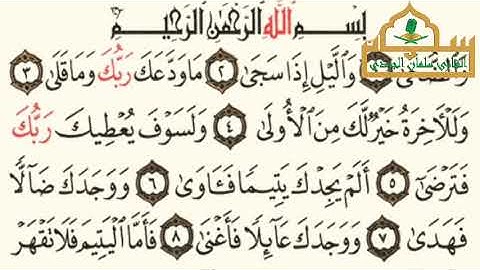 بِسْمِ اللَّهِ الرَّحْمَٰنِ الرَّحِيمِ
وَاللَّيْلِ إِذَا سَجَىٰ ٢ مَا وَدَّعَكَ رَبُّكَ وَمَا قَلَىٰ ٣
وَلَلْآخِرَةُ خَيْرٌ لَّكَ مِنَ الْأُولَىٰ ٤ وَلَسَوْفَ يُعْطِيكَ رَبُّكَ
فَتَرْضَىٰ ٥ أَلَمْ يَجِدْكَ يَتِيمًا فَـَٔاوَىٰ ٦ وَوَجَدَكَ ضَآلًّا
فَهَدَىٰ ٧ وَوَجَدَكَ عَآئِلًا فَأَغْنَىٰ ٨ فَأَمَّا الْيَتِيمَ فَلَا تَقْهَرْ